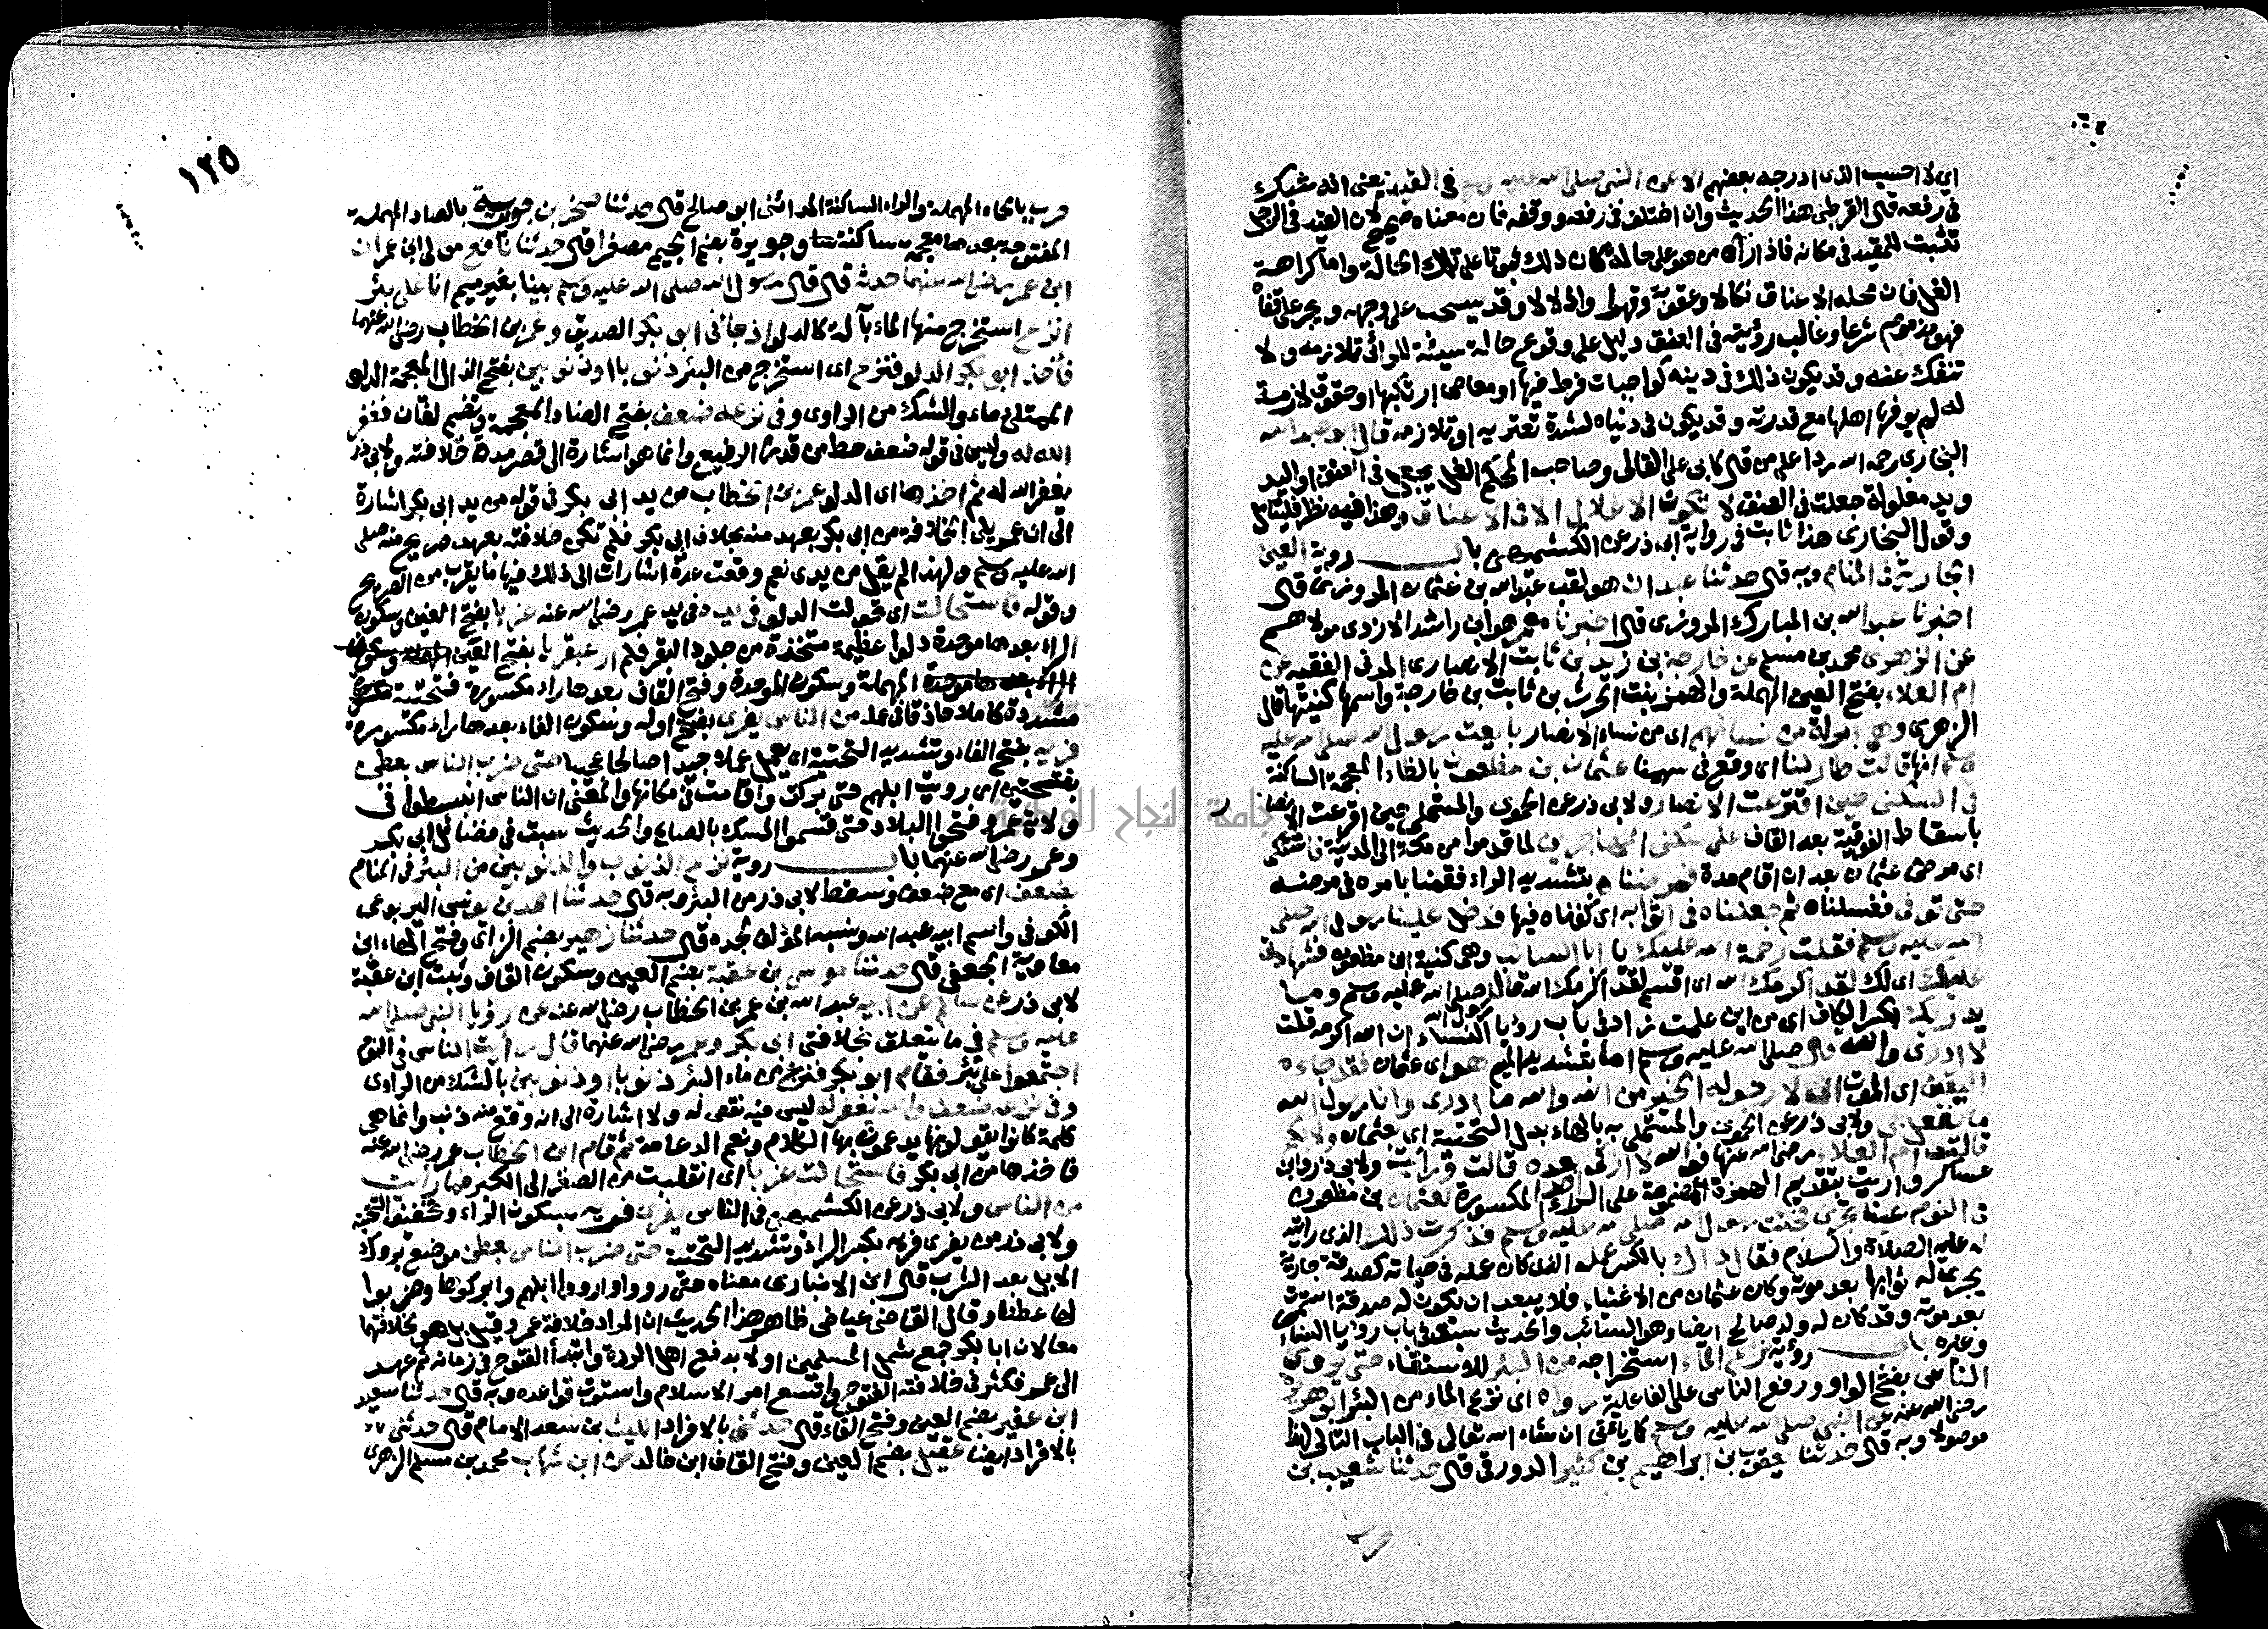 اى لا احسب الذى ادرجه بعضهم الا عن النبى صلى الله عليه وسلم فى القيد يعنى انه شك
فى رفعه قال القرطبى هذا الحديث وان اختلف فى رفعه ووقفه فان معناه صحيح لان القيد فى الرجل
تثبت للمقيد فى مكانه فاذا رآه من هو على حالة كان ذلك ثبوتا على تلك الحالة واما كراهة
الغل فان محله الاعناق نكالا وعقوبة وقهرا واذلالا وقد يسحب على وجهه ويجر على قفاه
فهو مذموم شرعا وغالب رؤيته فى العنق دليل على وقوع حالة سيئة للرائى تلازمه ولا
تنفك عنه وقد يكون ذلك فى دينه كواجبات فرط فيها او معاصى ارتكبها او حقوق لازمة
له لم يوفها اهلها مع قدرته وقد يكون فى دنياه لشدة تعتريه او تلازمه قال ابو عبد الله
البخارى رحمه الله ردا على من قال كابى على القالى وصاحب المحكم الغل يجعل فى العنق او اليد
ويد مغلولة جعلت فى العنق لا تكون الاغلال الا فى الاعناق وهذا فيه نظر فليتأمل
وقول البخارى هذا ثابت فى رواية ابى ذر عن الكشميهنى باب رؤية العين
الجارية فى المنام وبه قال حدثنا عبدان هو لقب عبد الله بن عثمان المروزى قال
اخبرنا عبد الله بن المبارك المروزى قال اخبرنا معمر هو ابن راشد الازدى مولاهم
عن الزهرى محمد بن مسلم عن خارجة بن زيد بن ثابت الانصارى المدنى الفقيه عن
ام العلاء بفتح العين المهملة والهمز بنت الحرث بن ثابت بن خارجة واسمها كنيتها قال
الزهرى وهى امراة من نسائهم اى من نساء الانصار بايعت رسول الله صلى الله عليه
وسلم انها قالت طار لنا اى وقع فى سهمنا عثمان بن مظعون بالظاء المعجمة الساكنة
فى السكنى حين اقترعت الانصار ولابى ذر عن الحموى والمستملى حين اقرعت الانصار
باسقاط الفوقية بعد القاف على سكنى المهاجرين لما قدموا من مكة الى المدينة فاشتكى
اى مرض عثمان بعد ان اقام مدة فمرضناه بتشديد الراء فقمنا بامره فى مرضه
حتى توفى فغسلناه ثم جعلناه فى اثوابه اى كفناه فيها فدخل علينا رسول الله صلى
الله عليه وسلم فقلت رحمة الله عليك يا ابا السائب وهى كنية ابن مظعون فشهادتى
عليك اى لك لقد اكرمك الله اى اقسم لقد اكرمك الله قال صلى الله عليه وسلم وما
يدريك بكسر الكاف اى من اين علمت زاد فى باب رؤيا النساء ان الله اكرمه قلت
لا ادرى والله قال رسول الله صلى الله عليه وسلم اما بتشديد الميم هو اى عثمان فقد جاءه
اليقين اى الموت انى لارجو له الخير من الله والله ما ادرى وانا رسول الله
ما يفعل بى ولابى ذر عن الحموى والمستملى به بالهاء بدل التحتية اى بعثمان ولا بكم
قالت ام العلاء رضى الله عنها فوالله لا ازكى احدا بعده قالت ورأيت ولابى ذر وابن
عساكر واريت بتقديم الهمزة المضمومة على الراء المكسورة لعثمان بن مظعون
فى النوم عينا تجرى فجئت رسول الله صلى الله عليه وسلم فذكرت ذلك الذى رأيته
له عليه الصلاة والسلام فقال ذاك بالكسر عمله الذى كان عمله فى حياته كصدقة جارية
يجرى له ثوابها بعد موته وكان عثمان من الاغنياء فلا يبعد ان يكون له صدقة استمرت
بعد موته وقد كان له ولد صالح ايضا وهو السائب والحديث سبق فى باب رؤيا النساء
وغيره باب رؤية نزع الماء استخراجه من البئر للاستقاء حتى يروى
الناس بفتح الواو ورفع الناس على الفاعلية رواه اى نزع الماء من البئر ابو هريرة
رضى الله عنه عن النبى صلى الله عليه وسلم كما يأتى ان شاء الله تعالى فى الباب التالى لهذا
موصولا وبه قال حدثنا يعقوب بن ابراهيم بن كثير الدورقى قال حدثنا شعيب بن
حرب
١٢٥
حرب بالحاء المهملة والراء الساكنة المدائنى ابو صالح قال حدثنا صخر بن جويرية بالصاد المهملة
المفتوحة بعدها معجمة ساكنة وجويرة بضم الجيم مصغرا قال حدثنا نافع مولى ابن عمر ان
ابن عمر رضى الله عنهما حدثه قال قال رسول الله صلى الله عليه وسلم بينا بغير ميم انا على بئر
انزع استخرج منها الماء بآلة كالدلو اذ جائنى ابو بكر الصديق وعمر بن الخطاب رضى الله عنهما
فأخذ ابو بكر الدلو فنزع اى استخرج من البئر ذنوبا او ذنوبين بفتح الذال المعجمة الدلو
الممتلئ ماء والشك من الراوى وفى نزعه ضعف بفتح الضاد المعجمة وتضم لغتان فغفر
الله له وليس فى قوله ضعف حط من قدره الرفيع وانما هو اشارة الى قصر مدة خلافته ولابى ذر
يغفر الله له ثم اخذها اى الدلو عمر بن الخطاب من يد ابى بكر فى قوله من يد ابى بكر اشارة
الى ان عمر يلى الخلافة من ابى بكر بعهد منه بخلاف ابى بكر فلم تكن خلافته بعهد صريح منه صلى
الله عليه وسلم ولهذا لم يقل من يدى نعم وقعت عدة اشارات الى ذلك فيها ما يقرب من الصريح
وقوله فاستحالت اى تحولت الدلو فى يده فى يد عمر رضى الله عنه غربا بفتح الغين وسكون
الراء بعدها موحدة دلوا عظيمة متخذة من جلود البقر فلم ار عبقريا بفتح العين
المهملة وسكون الموحدة وفتح القاف بعدها راء مكسورة فتحتية
مشددة كاملا حاذقا فى عمله من الناس يفرى بفتح اوله وسكون الفاء بعدها راء مكسورة
فريه بفتح الفاء وتشديد التحتية اى يعمل عملا جيدا صالحا عجيبا حتى ضرب الناس بعطن
بفتحتين اى رويت ابلهم حتى بركت واقامت فى مكانها والمعنى ان الناس انبسطوا فى
ولاية عمر وفتحوا البلاد حتى قسموا المسك بالصاع والحديث سبق فى فضائل ابى بكر
وعمر رضى الله عنهما باب رؤية نزع الذنوب والذنوبين من البئر فى المنام
بضعف اى مع ضعف وسقط لابى ذر من البئر وبه قال حدثنا احمد بن يونس اليربوعى
الكوفى واسم ابيه عبد الله ونسبه المؤلف لجده قال حدثنا زهير بضم الزاى وفتح الهاء ابن
معاوية الجعفى قال حدثنا موسى بن عقبة بضم العين وسكون القاف وثبت ابن عقبة
لابى ذر عن سالم عن ابيه عبد الله بن عمر بن الخطاب رضى الله عنه عن رؤيا النبى صلى الله
عليه وسلم فى ما يتعلق بخلافتى ابى بكر وعمر رضى الله عنهما قال رأيت الناس فى النوم
اجتمعوا على بئر فقام ابو بكر فنزع من ماء البئر ذنوبا او ذنوبين بالشك من الراوى
وفى نزعه ضعف والله يغفر له ليس فيه نقص له ولا اشارة الى انه وقع منه ذنب وانما هى
كلمة كانوا يقولونها يدعمون بها الكلام ونعم الدعامة ثم قام ابن الخطاب عمر رضى الله عنه
فاخذها من ابى بكر فاستحالت غربا اى انقلبت من الصغر الى الكبر فما رأيت
من الناس ولابى ذر عن الكشميهنى فى الناس يفرى فريه بسكون الراء وتخفيف التحتية
ولابى ذر من يفرى فريه بكسر الراء وتشديد التحتية حتى ضرب الناس بعطن موضع بروك
الابل بعد الشرب قال ابن الانبارى معناه حتى رووا واوردوا ابلهم وابركوها وضربوا
لها عطنا وقال القاضى عياض ظاهر هذا الحديث ان المراد خلافة عمر وقيل بل هو بخلافتهما
معا لان ابا بكر جمع شمل المسلمين اولا بدفع اهل الردة وابتدأ الفتوح فى زمانه ثم عهد
الى عمر فكثر فى خلافته الفتوح واتسع امر الاسلام واستوت قواعده وبه قال حدثنا سعيد
ابن عفير بضم العين وفتح الفاء قال حدثنى بالافراد الليث بن سعد الامام قال حدثنى
بالافراد ايضا عقيل بضم العين وفتح القاف ابن خالد عن ابن شهاب محمد بن مسلم الزهرى
جامعة النجاح الوطنية